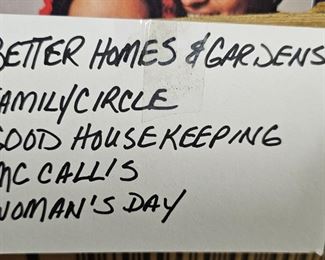 BETTER HOMES & GARDENS
FAMILY CIRCLE
GOOD HOUSEKEEPING
MC CALL'S
WOMAN'S DAY